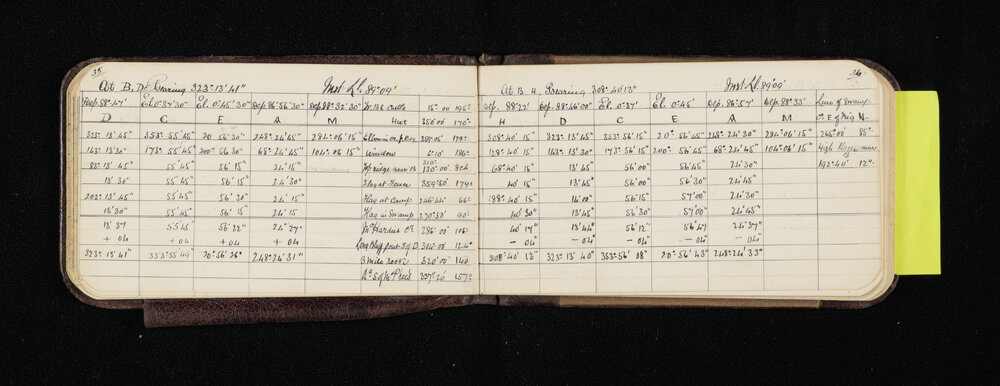 35
At B, D Bearing 323° 13' 41" Inst Ll. 89° 09'
Dep. 88° 47' El 0° 34' 30" El. 0° 45' 30" Dep. 86° 56' 30" Dep 88° 32' 30" 15° 00 195°
D C E A M Hut 250° 00' 170°
323° 13' 45" 353° 55' 45" 20° 56' 30" 248° 24' 45" 284° 06' 15" 179°
143° 13' 30" 173° 55' 45" 200° 56' 30" 68° 24' 45" 104° 06' 15" Window 186°
83° 13' 45" 55' 45" 56' 15" 24' 15" ridge near B 130° 00'
13' 30" 55' 45" 56' 15" 24' 30" Flag at Fence 359° 50'
203° 13' 45" 55' 45" 56' 30" 24' 15" Flag at Camp 246° 44' 66°
13' 30" 55' 45" 56' 15" 24' 15 Flag in Swamp 270° 52' 90°
13' 37 55' 45 56' 22" 24' 27" 286° 00' 106°
+ 04 + 04 + 04 + 04 D. 304° 00' 124°
323° 13' 41" 353° 55' 49" 20° 56' 26" 248° 24' 31" 3 mile rocks 320° 00' 140
337° 20' 157°
36
At B. H, Bearing 308° 40' 13" Inst Ll. 89° 09'
Dep. 88° 22' Dep. 88° 46' 00" El. 0° 37' El. 0° 45' Dep. 86° 57' Dep. 88° 33' Line of swamp
H D C E A M E of Trig N
308° 40' 15" 323° 13' 45" 353° 56' 15" 20° 56' 45" 248° 24' 30" 284° 06' 15" 265° 00' 85°
128° 40' 15" 143° 13' 30" 173° 56' 15" 200° 56' 45" 68° 24' 45" 104° 06' 15" High
68° 40' 15" 13' 45" 56' 00" 56' 45" 24' 30" 192° 40' 12°
40' 15" 13' 45" 56' 00" 56' 30" 24' 45"
188° 40' 15" 14' 00" 56' 15" 57' 00" 24' 45"
40' 30" 13' 45" 56' 30" 57' 00" 24' 45"
40' 17" 13' 44" 56' 12" 56' 47 24' 37"
- 04" - 04' - 04" - 04 - 04"
308° 40' 13" 323° 13' 40" 353° 56' 08" 20° 56' 43" 248° 24' 33"